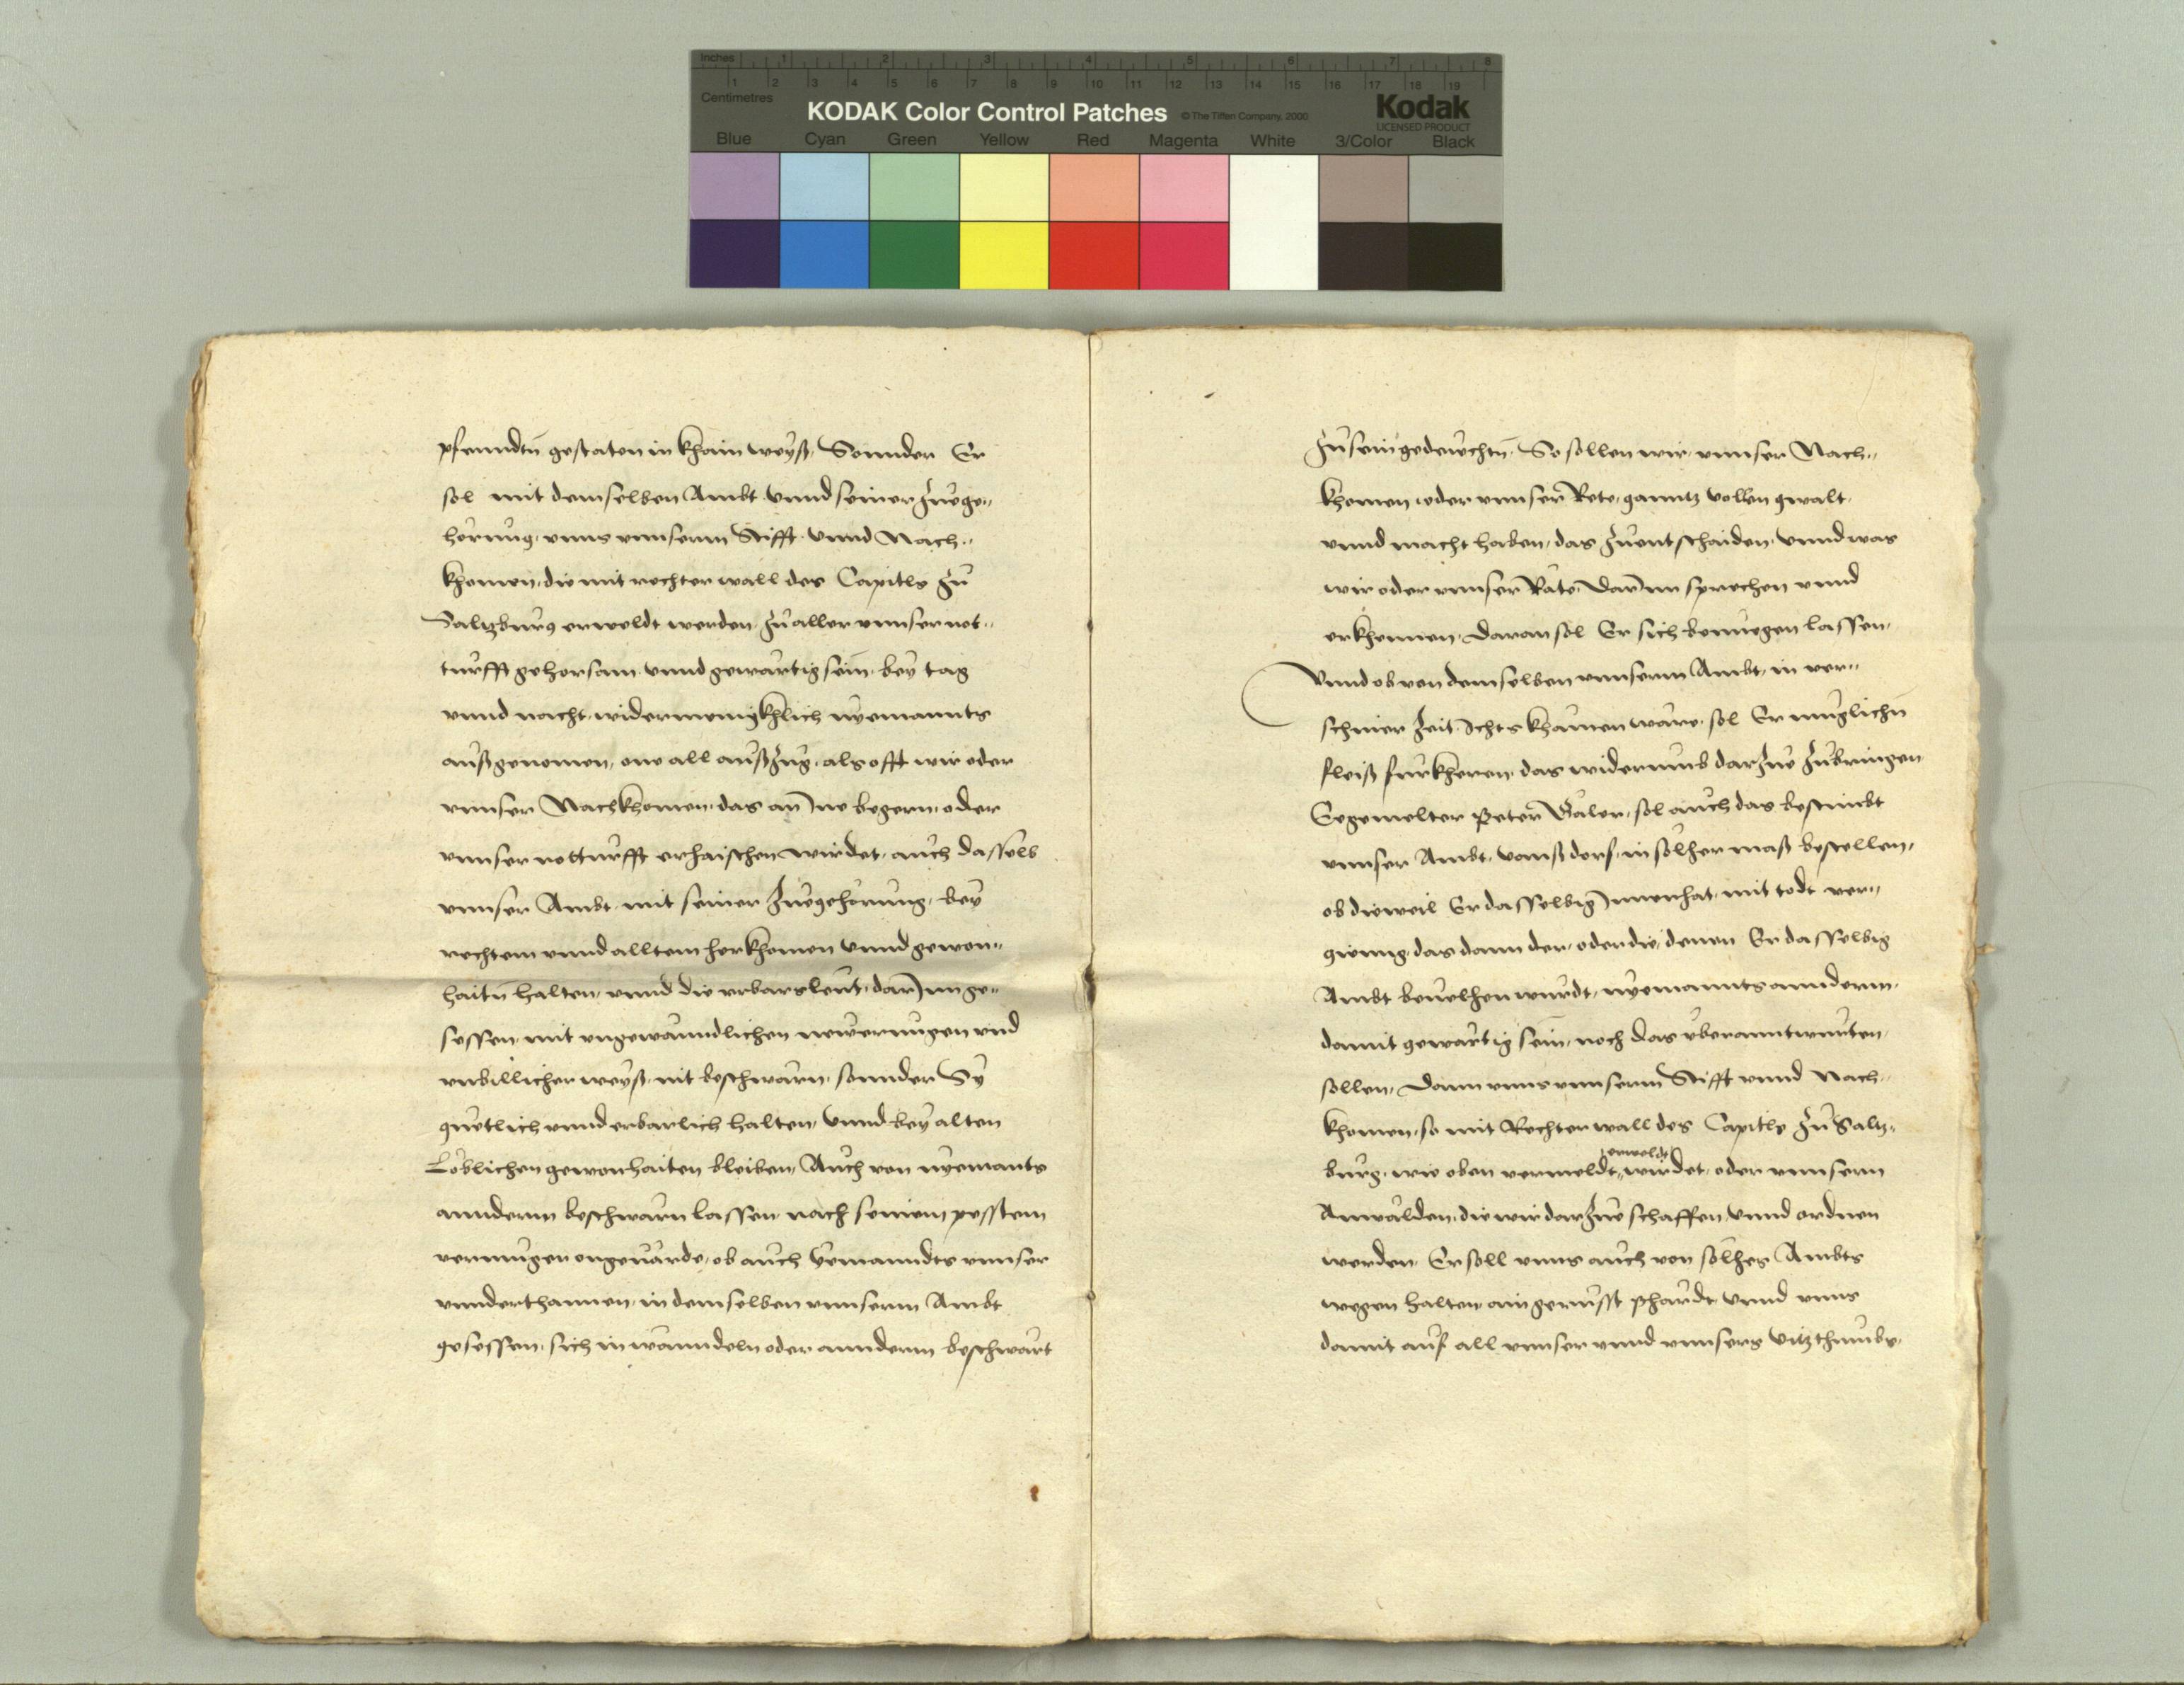 Inches 1 2 3 4 5 6 7 8
1 2 3 4 5 6 7 8 9 10 11 12 13 14 15 16 17 18 19
Centimetres
KODAK Color Control Patches © The Tiffen Company, 2000 Kodak
LICENSED PRODUCT
Blue Cyan Green Yellow Red Magenta White 3/Color Black
pfenndtn̄ gestaten in khain weyß, Sonnder Er
sol mit demselben Ambt vnnd seiner zuege„
hörung, vnns vnnserm Stifft vnnd Nach„
khomen, die mit rechter wall des Capitls zu
Saltzburg erweldt werden, zu aller vnnser not„
turfft gehorsam vnnd gewärtig sein, bey tag
vnnd nacht, wider menigkhlich nyemannts
außgenomen, one all außzug, als offt wir oder
vnnser Nachkhomen, das an Ine begern, oder
vnnser notturfft erhaischen wirdet, auch dasselb
vnnser Ambt mit seiner zuegehörung, bey
rechtem vnnd alltem herkhomen vnnd gewon„
haitn̄ halten, vnnd die vrbarsleut, darJnn ge„
sessen, mit vngewänndlichen newerungen vnd
vnbillicher weyß, nit beschwärn, sonnder Sy
guetlich vnnd erbarlich halten, vnnd bey alten
Löblichen gewonhaiten bleiben, Auch von nyemants
annderm beschwärn lassen, nach seinem pesstem
vermugen ongeuärde, ob auch yemanndts vnnser
vnnderthannen, in demselben vnnserm Ambt
gesessen, sich in wänndeln oder annderm beschwärt
zu sein gedeuchtn̄, So sollen wir, vnnser Nach„
khomen oder vnnser Rete, ganntz vollen gwalt,
vnnd macht haben, das zu entschaiden, vnnd was
wir oder vnnser Räte, darJnn sprechen vnnd
erkhennen, daran sol Er sich benuegen lassen,
Vnnd ob von demselben vnnserm Ambt, in ver„
schiner zeit, Ichts khumen wäre, sol Er muglichn̄
fleiß furkheren, das widerumb darzue zubringen
Gegemelter Peter, sol auch das bestimbt
vnnser Ambt, vansdorf, in solher maß bestellen,
ob dieweil Er dasselbig Innenhat, mit todt ver„
gienng, das dann der, oder die, denen Er dasselbig
Ambt beuelhen wurdt, nyemannts annderm,
damit gewärtig sein, noch das vberanntwurten,
sollen, Dann vnns vnnserm Stifft vnnd Nach„
khomen, so mit Rechter wall des Capitls zu Saltz„
burg, wie oben vermeldt, erweldt wirdet, oder vnnsern
Anwälden, die wir darzue schaffen, vnnd ordnen
werden, Er soll vnns auch von solhes Ambts
wegen halten, ain gerusst phärdt, vnnd vnns
damit auf all vnnser vnnd vnnsers Vitzthumbs,